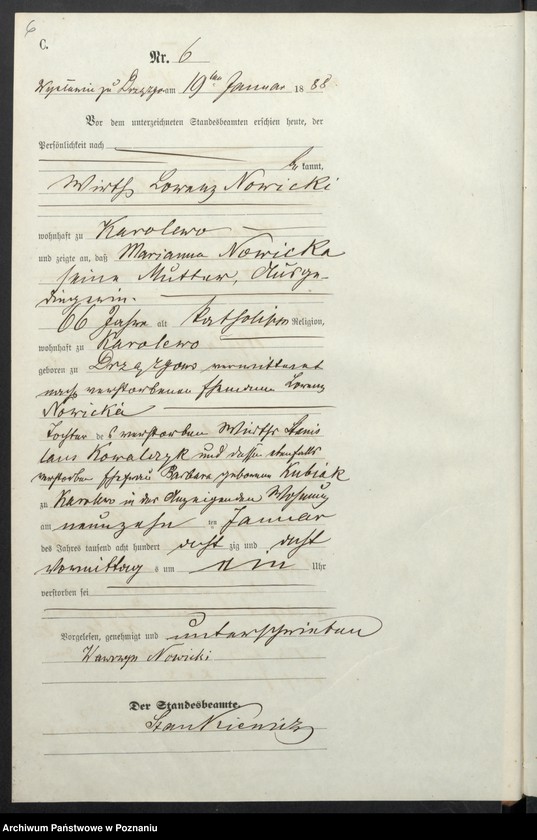 6
C.
Nr. 6
zu am 19ten Januar 1888
Vor dem unterzeichneten Standesbeamten erschien heute, der
Persönlichkeit nach
be kannt,
Wirth Lorenz Nowicki
wohnhaft zu Karolewo
und zeigte an, daß Marianna Nowicka
seine Mutter, Ausge-
dingerin.
66 Jahre alt katholischer Religion,
wohnhaft zu Karolewo
geboren zu verwittwet
nach verstorbenen Ehemann Lorenz
Nowicki
Tochter des verstorben Wirths Stanis
laus Kowalczyk und dessen ebenfalls
verstorben Ehefrau Barbara geborene Kubiak
zu Karolewo in des Anzeigenden Wohnung
am neunzehn ten Januar
des Jahres tausend acht hundert acht zig und acht
Vormittag s um ein Uhr
verstorben sei
Vorgelesen, genehmigt und unterschrieben
Wawrzyn Nowicki
Der Standesbeamte.
Stankiewicz
Archiwum Państwowe w Poznaniu